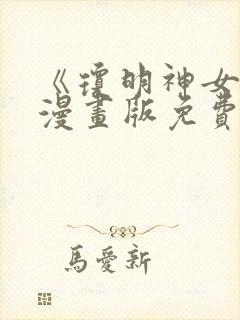 《瓊明神女
漫畫版免費
馬愛新